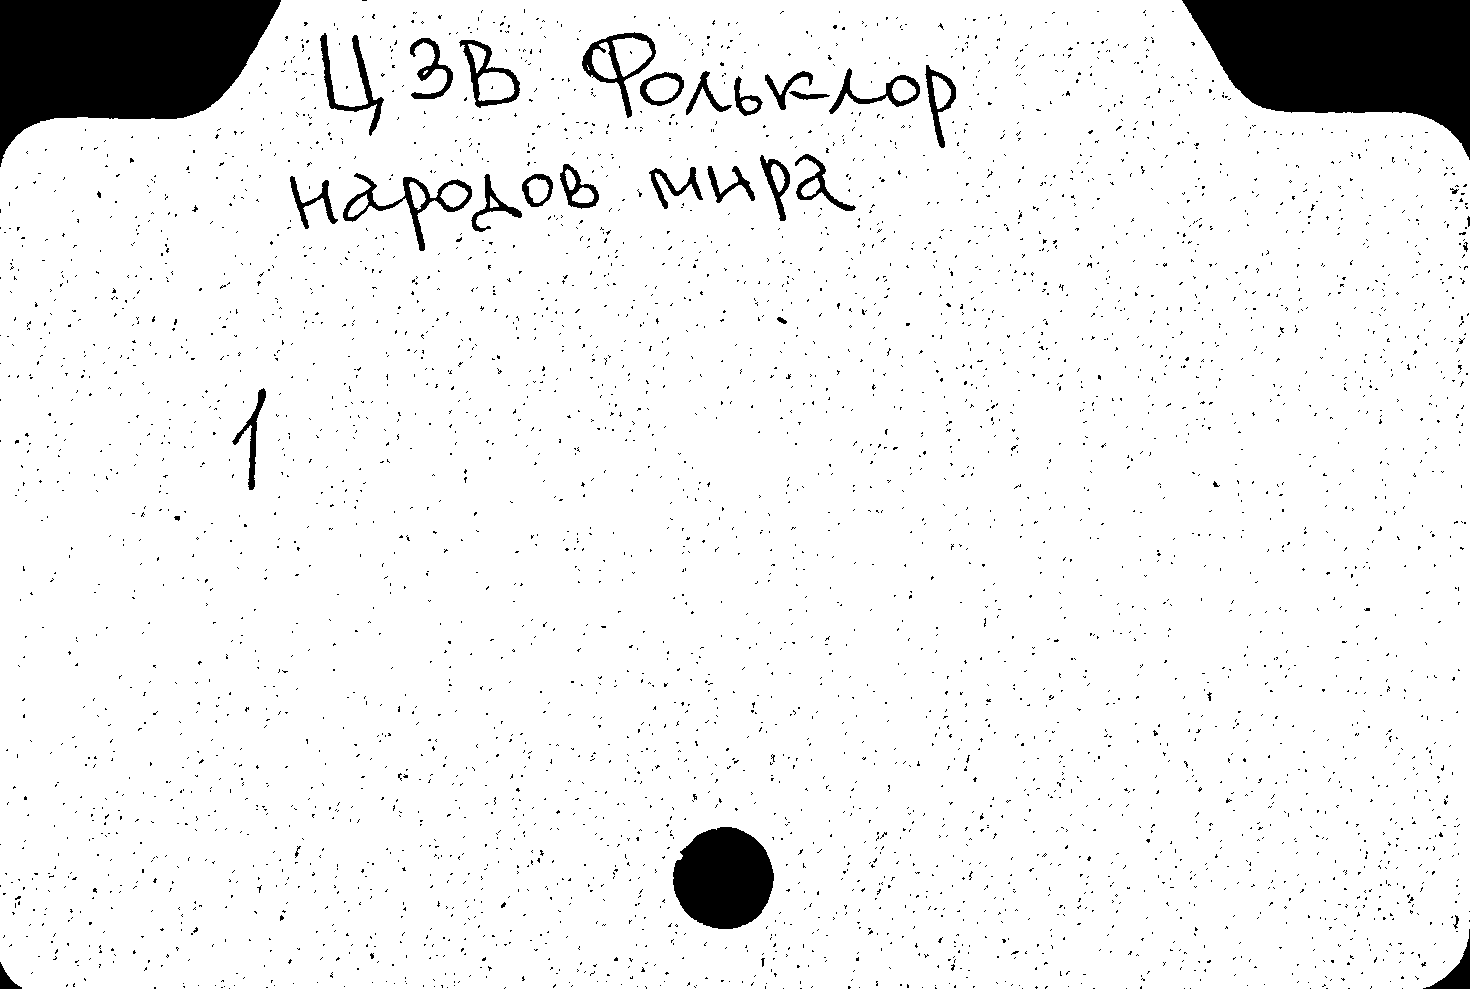 ЦЗВ Фольклор
народов мира
1